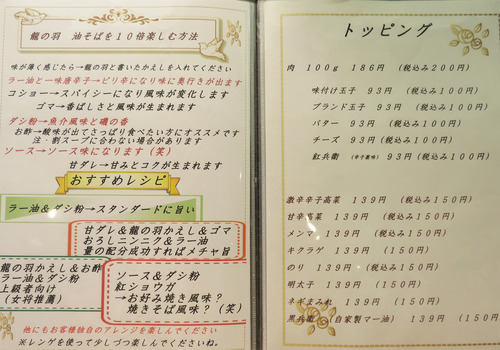 龍の羽 油そばを10倍楽しむ方法
味が薄く感じたら→龍の羽と書いたかえしを入れてください
ラー油と一味唐辛子→ピリ辛になり味に奥行きが出ます
コショー→スパイシーになり風味が変化します
ゴマ→香ばしさと風味が生まれます
ダシ粉→魚介風味と磯の香
お酢→酸味が出てさっぱり食べたい方にオススメです
注・割スープに合わない場合があります
ソース→ソース味になります(笑)
甘ダレ→甘みとコクが生まれます
おすすめレシピ
ラー油&ダシ粉→スタンダードに旨い
甘ダレ&龍の羽かえし&ゴマ
おろしニンニク&ラー油
量の配分成功すればメチャ旨
龍の羽かえし&お酢
ラー油&ダシ粉
上級者向け
(女将推薦)
ソース&ダシ粉
紅ショウガ
→お好み焼き風味?
焼きそば風味?(笑)
他にもお客様独自のアレンジを楽しんでください
※レンゲを使って少しづつ楽しんでくださいね。
トッピング
肉 100g 186円 (税込み200円)
味付け玉子 93円 (税込み100円)
ブランド玉子 93円 (税込み100円)
バター 93円 (税込み100円)
チーズ 93円 (税込み100円)
紅兵衛 (辛子薬味) 93円 (税込み100円)
激辛辛子高菜 139円 (税込み150円)
甘辛高菜 139円 (税込み150円)
メンマ 139円 (税込み150円)
キクラゲ 139円 (150円)
のり 139円 (税込み150円)
明太子 139円 (税込み150円)
ネギまみれ 139円 (150円)
黒兵衛 (自家製マー油) 139円 (150円)